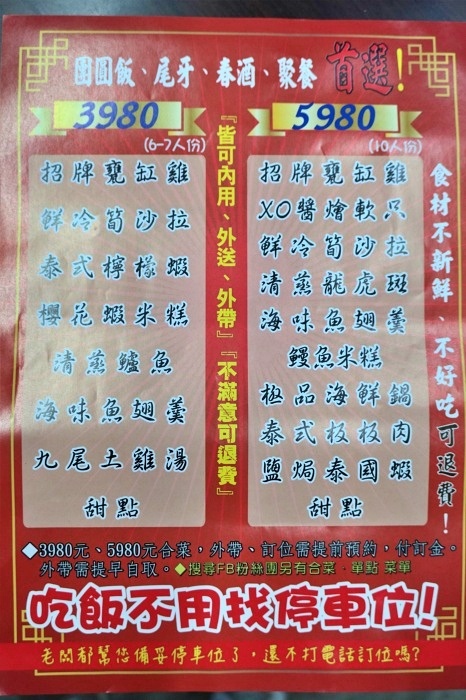 團圓飯、尾牙、春酒、聚餐 首選!
3980
(6-7人份)
招牌甕缸雞
鮮冷筍沙拉
泰式檸檬蝦
櫻花蝦米糕
清蒸鱸魚
海味魚翅羹
九尾土雞湯
甜點
『皆可內用、外送、外帶』『不滿意可退費』
5980
(10人份)
招牌甕缸雞
XO醬燴軟只
鮮冷筍沙拉
清蒸龍虎斑
海味魚翅羹
鰻魚米糕
極品海鮮鍋
泰式椒椒肉
鹽焗泰國蝦
甜點
食材不新鮮、不好吃可退費!
◆3980元、5980元合菜，外帶、訂位需提前預約，付訂金。
外帶需提早自取。◆搜尋FB粉絲團另有合菜‧單點 菜單
吃飯不用找停車位!
老闆都幫您備妥停車位了，還不打電話訂位嗎?